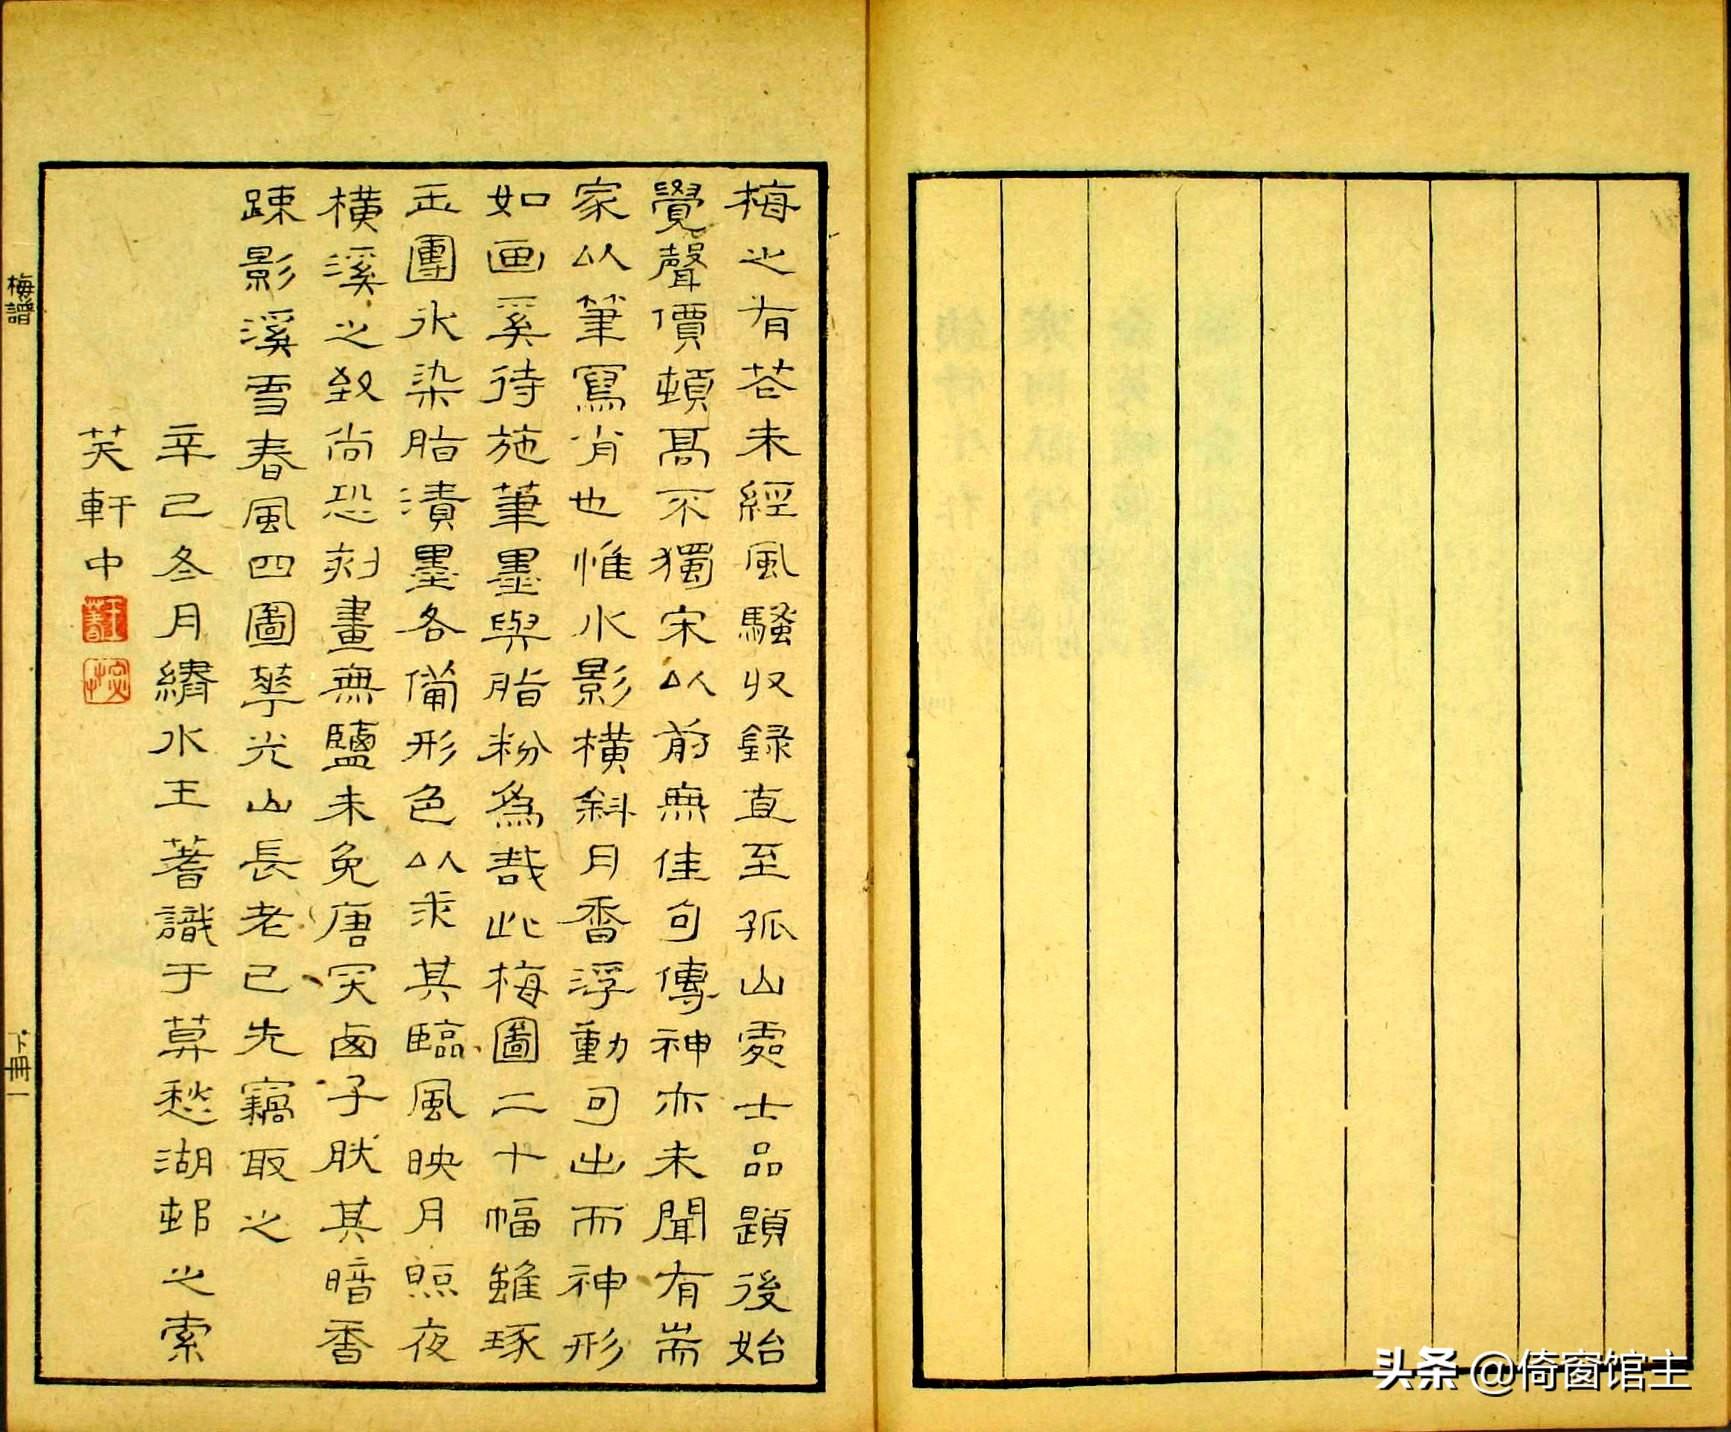 梅之有花未經風騷収録直至孤山處士品題後始
覺聲價頓高不獨宋以前無佳句傳神亦未聞有耑
家以筆寫肖也惟水影橫斜月香浮動可出而神形
如画奚待施筆墨與脂粉爲哉此梅圖二十幅雖琢
玉團氷染脂漬墨各備形色以求其臨風映月照夜
橫溪之致尚恐刻畫無鹽未免唐突西子肰其暗香
踈影溪雪春風四圖華光山長老已先竊取之
辛巳冬月繡水王蓍識于莫愁湖邨之索
芺軒中
王蓍
梅譜
下冊 一
头条 @倚窗馆主